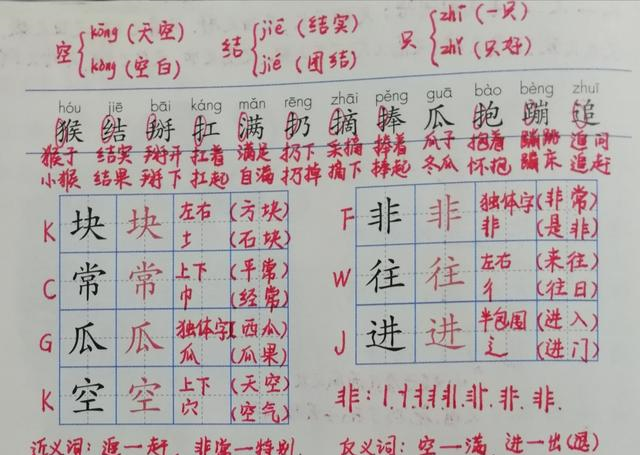 空 kōng（天空） kòng（空白） 结 jiē（结实） jié（团结） 只 zhī（一只） zhǐ（只好）
hóu jiē bāi káng mǎn rēng zhāi pěng guā bào bèng zhuī
猴 结 掰 扛 满 扔 摘 捧 瓜 抱 蹦 追
猴子 结实 掰开 扛着 满足 扔下 采摘 捧着 瓜子 抱着 蹦跳 追问
小猴 结果 掰下 扛起 自满 扔掉 摘下 捧起 冬瓜 怀抱 蹦床 追赶
K 块 块 左右 土 （方块）（石块）
F 非 非 独体字 非 （非常）（是非）
C 常 常 上下 巾 （平常）（经常）
W 往 往 左右 彳 （来往）（往日）
G 瓜 瓜 独体字 瓜 （西瓜）（瓜果）
J 进 进 半包围 辶 （进入）（进门）
K 空 空 上下 穴 （天空）（空气）
非：
近义词：追—赶、非常—特别、
反义词：空—满、进—出（退）